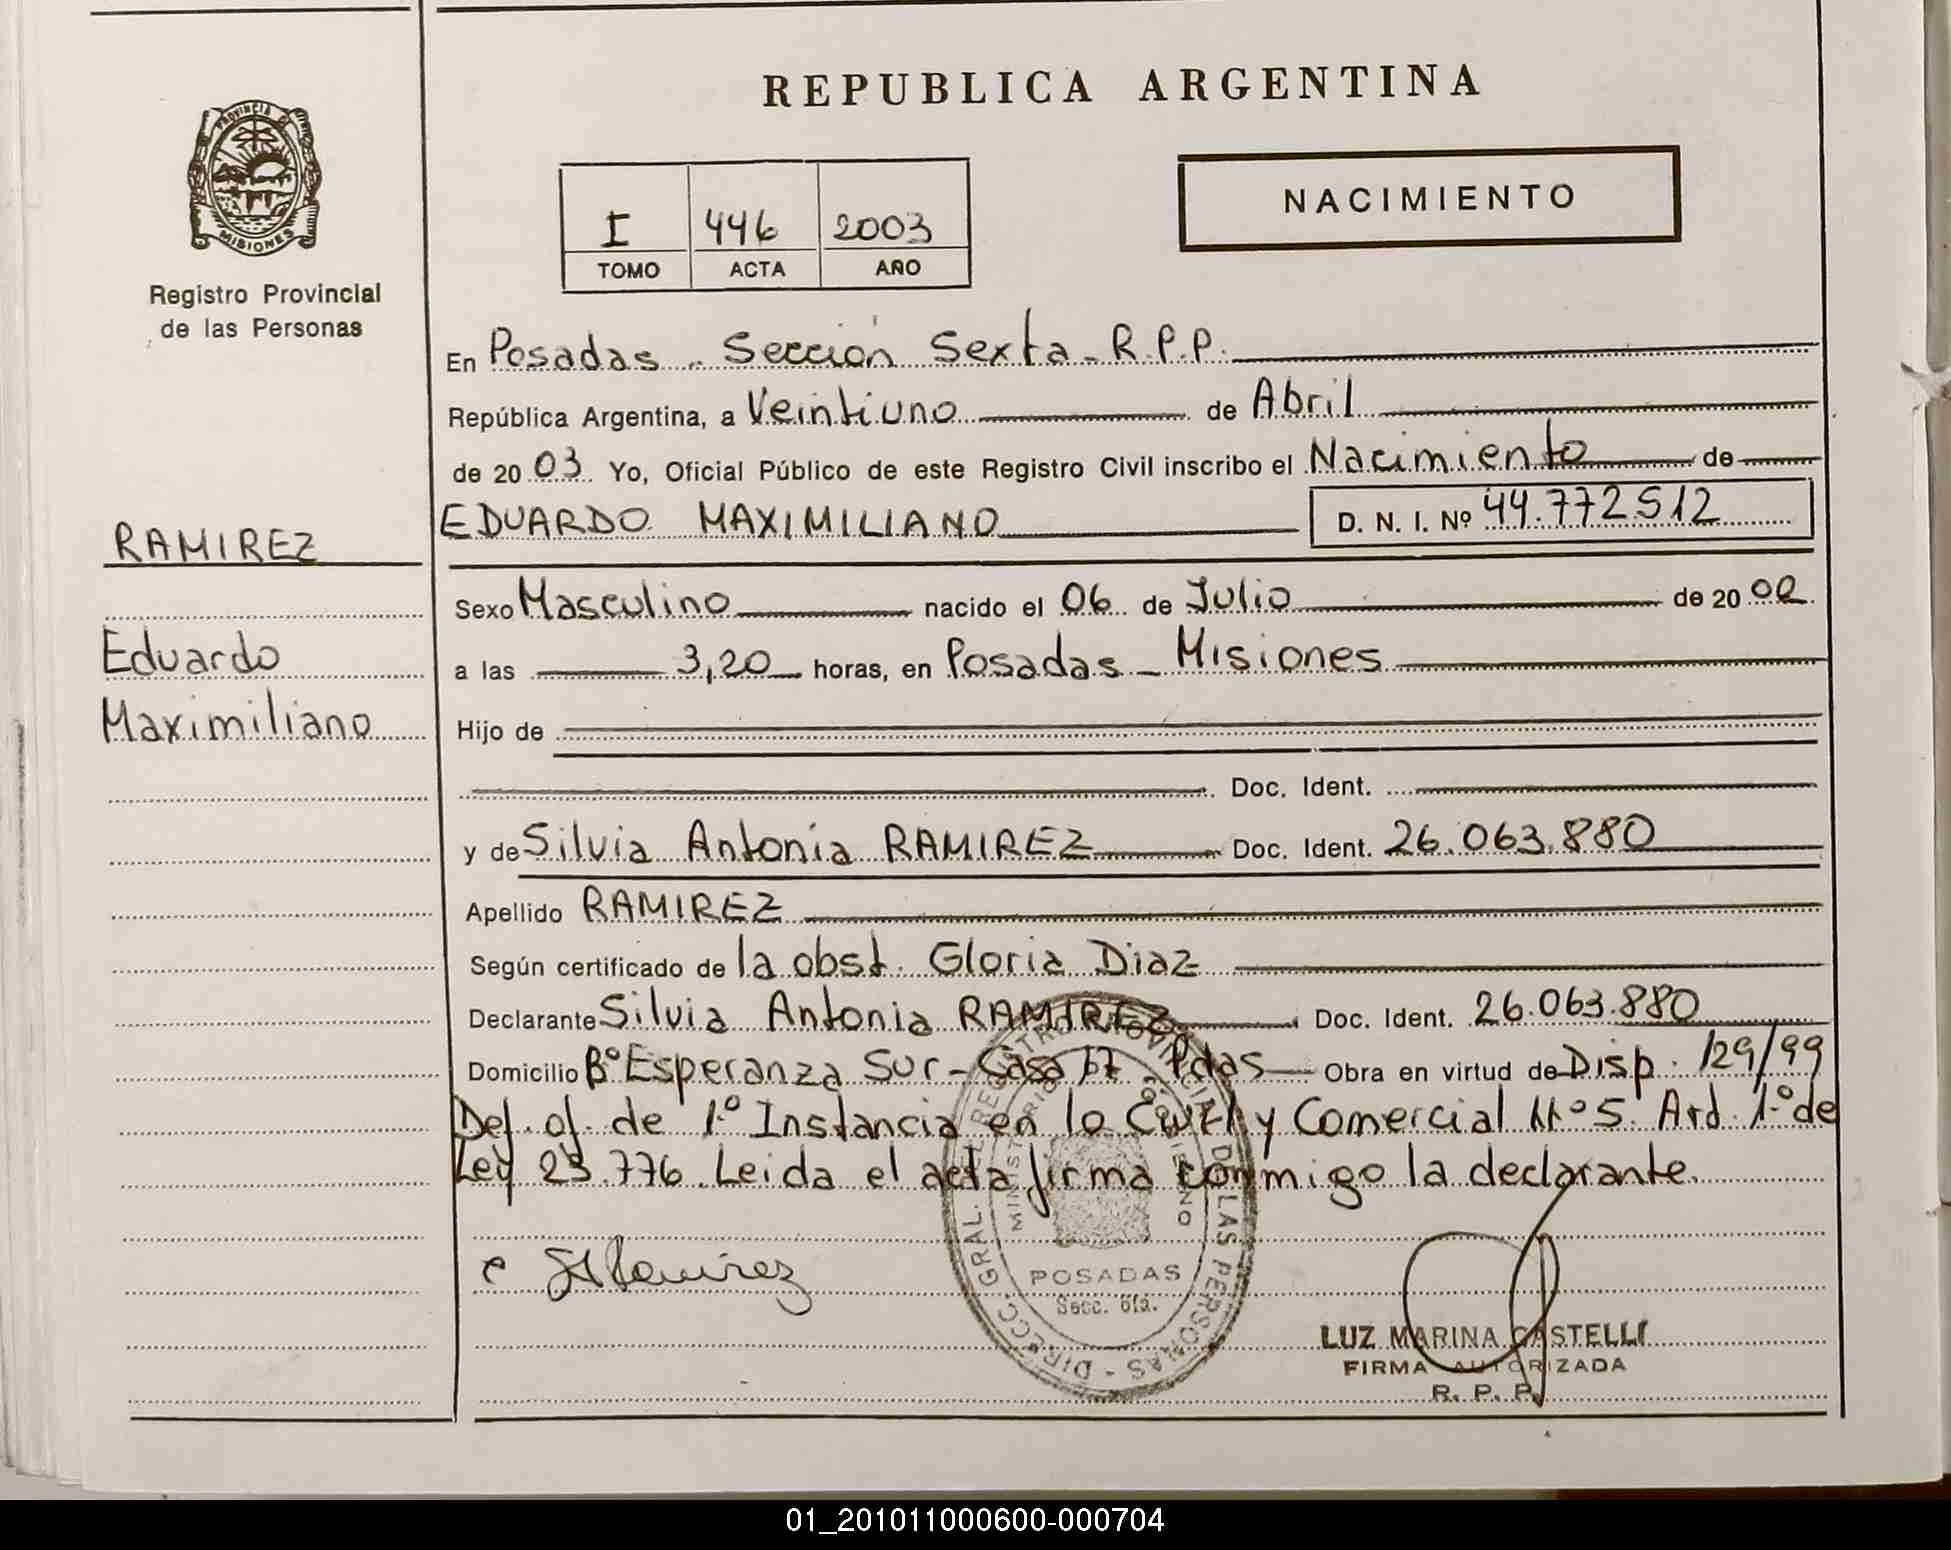 REPUBLICA ARGENTINA
PROVINCIA DE
MISIONES
Registro Provincial
de las Personas
I 446 2003
TOMO ACTA AÑO
NACIMIENTO
En Posadas - Sección Sexta - R.P.P.
República Argentina, a Veintiuno de Abril
de 20 03 Yo, Oficial Público de este Registro Civil inscribo el Nacimiento de
RAMIREZ
EDUARDO MAXIMILIANO D. N. I. Nº 44.772512
Sexo Masculino nacido el 06 de Julio de 20 02
Eduardo
a las 3,20 horas, en Posadas - Misiones
Maximiliano
Hijo de
Doc. Ident.
y de Silvia Antonia RAMIREZ Doc. Ident. 26.063.880
Apellido RAMIREZ
Según certificado de la obst. Gloria Diaz
Declarante Silvia Antonia RAMIREZ Doc. Ident. 26.063.880
Domicilio Bº Esperanza Sur - Casa 17 Pdas Obra en virtud de Disp. 129/99
Def. of. de 1º Instancia en lo Civil y Comercial Nº 5 Art. 1º de
Ley 23.776. Leida el acta firma conmigo la declarante.
SARamirez
DIRECC. GRAL. DEL REGISTRO PROVINCIAL DE LAS PERSONAS
MINISTERIO DE GOBIERNO
POSADAS
Secc. 6ta.
LUZ MARINA CASTELLI
FIRMA AUTORIZADA
R. P. P.
01_201011000600-000704